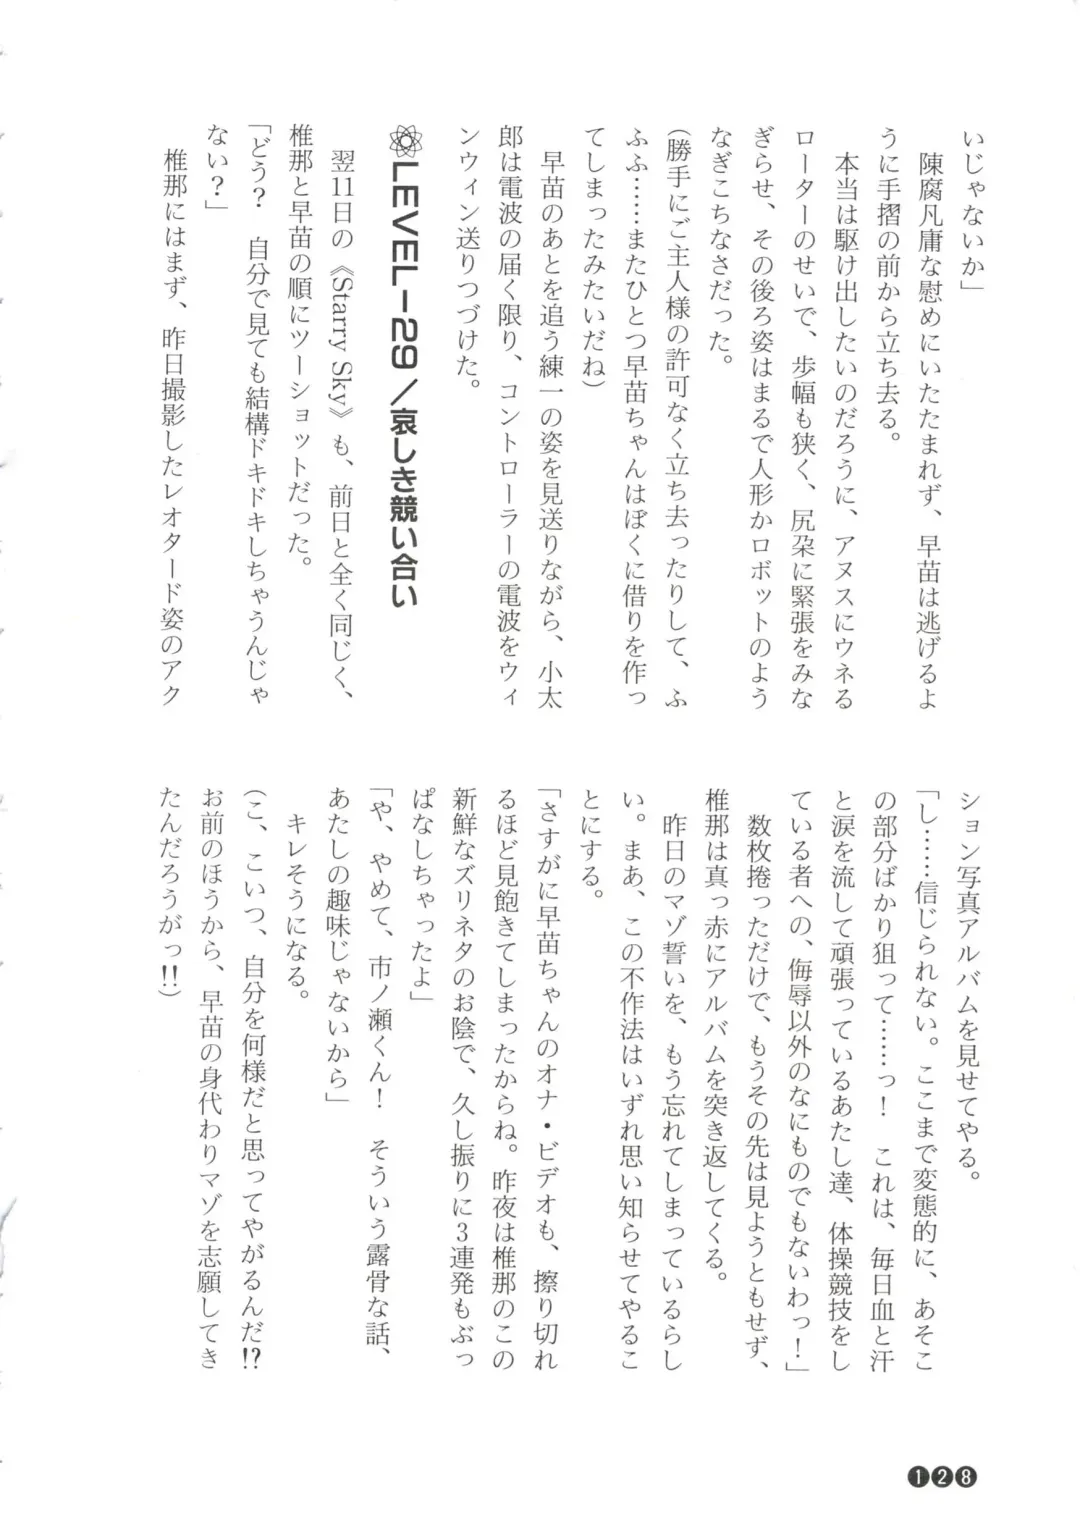 いじゃないか」
　陳腐凡庸な慰めにいたたまれず、早苗は逃げるよ
うに手摺の前から立ち去る。
　本当は駆け出したいのだろうに、アヌスにウネる
ローターのせいで、歩幅も狭く、尻朶に緊張をみな
ぎらせ、その後ろ姿はまるで人形かロボットのよう
なぎこちなさだった。
（勝手にご主人様の許可なく立ち去ったりして、ふ
ふふ……またひとつ早苗ちゃんはぼくに借りを作っ
てしまったみたいだね）
　早苗のあとを追う練一の姿を見送りながら、小太
郎は電波の届く限り、コントローラーの電波をウィ
ンウィン送りつづけた。
LEVEL−29／哀しき競い合い
　翌11日の《Starry Sky》も、前日と全く同じく、
椎那と早苗の順にツーショットだった。
「どう？　自分で見ても結構ドキドキしちゃうんじゃ
ない？」
　椎那にはまず、昨日撮影したレオタード姿のアク
ション写真アルバムを見せてやる。
「し……信じられない。ここまで変態的に、あそこ
の部分ばかり狙って……っ！　これは、毎日血と汗
と涙を流して頑張っているあたし達、体操競技をし
ている者への、侮辱以外のなにものでもないわっ！」
　数枚捲っただけで、もうその先は見ようともせず、
椎那は真っ赤にアルバムを突き返してくる。
　昨日のマゾ誓いを、もう忘れてしまっているらし
い。まあ、この不作法はいずれ思い知らせてやるこ
とにする。
「さすがに早苗ちゃんのオナ・ビデオも、擦り切れ
るほど見飽きてしまったからね。昨夜は椎那のこの
新鮮なズリネタのお陰で、久し振りに3連発もぶっ
ぱなしちゃったよ」
「や、やめて、市ノ瀬くん！　そういう露骨な話、
あたしの趣味じゃないから」
　キレそうになる。
（こ、こいつ、自分を何様だと思ってやがるんだ!?
お前のほうから、早苗の身代わりマゾを志願してき
たんだろうがっ!!）
128